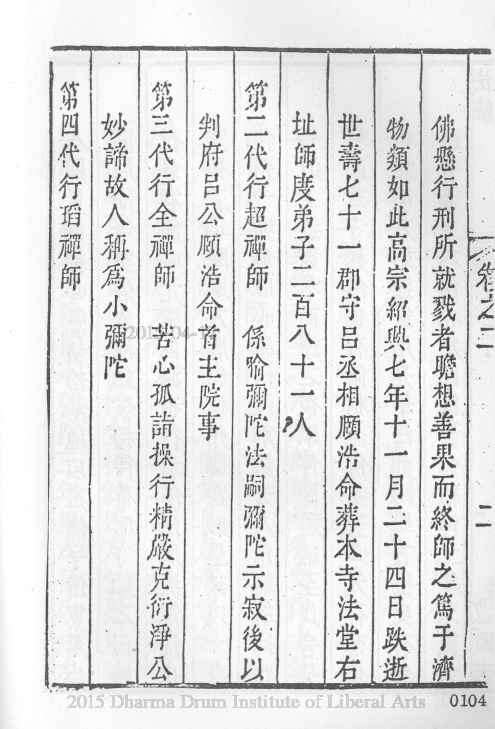 卷之二 二
佛懸行刑所就戮者瞻想善果而終師之篤于濟
物類如此高宗紹興七年十一月二十四日趺逝
世壽七十一郡守呂丞相頤浩命葬本寺法堂右
址師度弟子二百八十一人
第二代行超禪師 係喻彌陀法嗣彌陀示寂後以
判府呂公頤浩命首主院事
第三代行全禪師 苦心孤詣操行精嚴克衍淨公
妙諦故人稱爲小彌陀
第四代行瑫禪師
2015 Dharma Drum Institute of Liberal Arts 0104